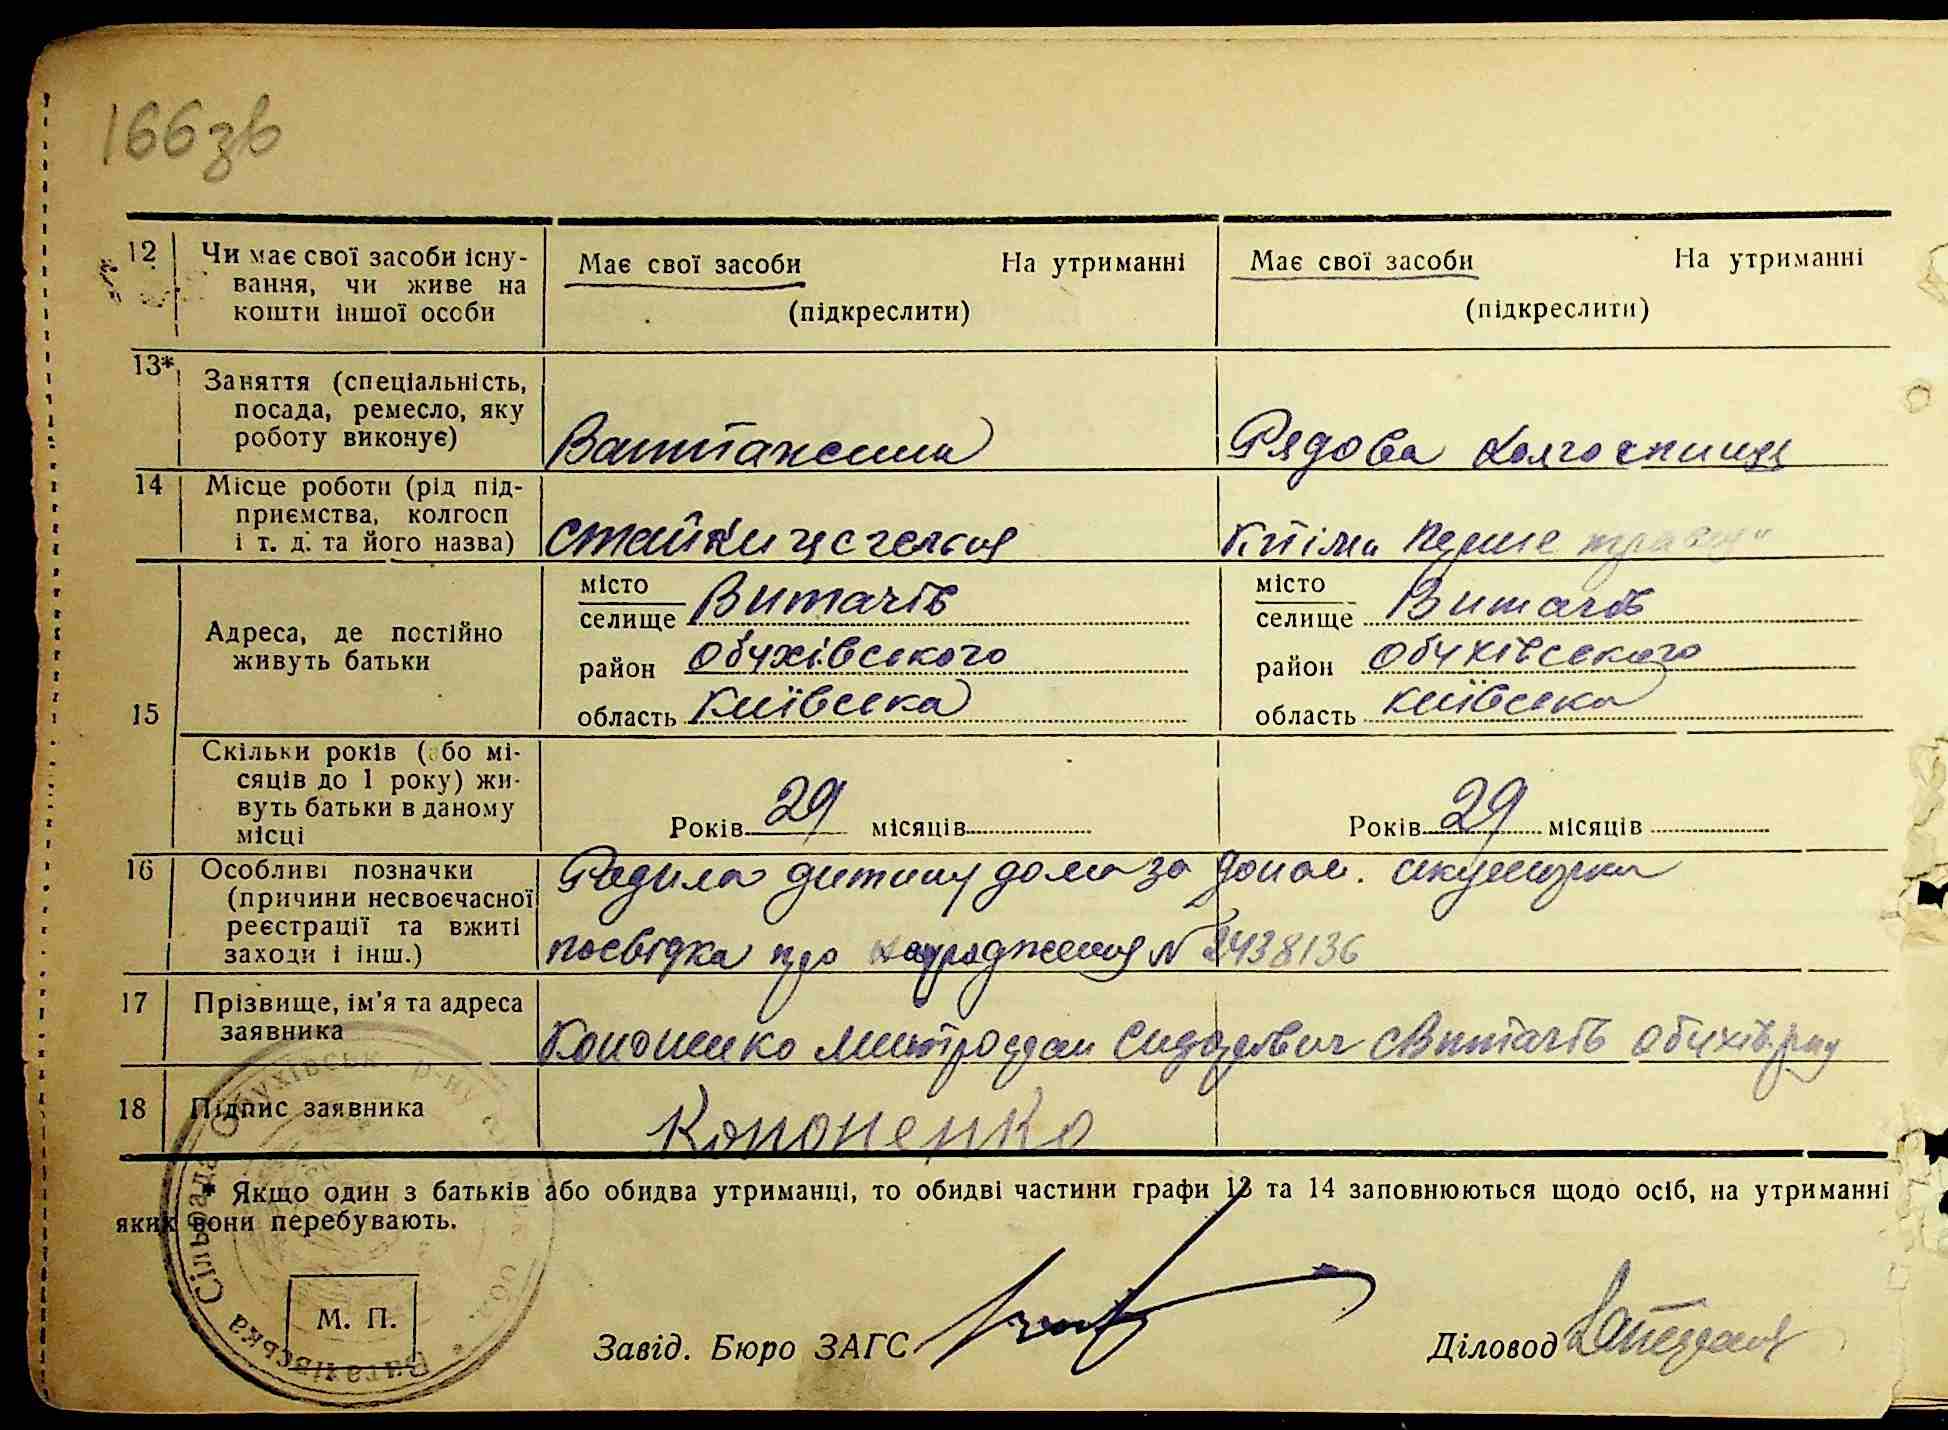 166зв
12 Чи має свої засоби існу-
вання, чи живе на
кошти іншої особи
Має свої засоби На утриманні
(підкреслити)
Має свої засоби На утриманні
(підкреслити)
13* Заняття (спеціальність,
посада, ремесло, яку
роботу виконує)
Рядова Колгоспниця
14 Місце роботи (рід під-
приємства, колгосп
і т. д. та його назва)
Стайки
Перше
15 Адреса, де постійно
живуть батьки
місто
селище Витачів
район Обухівського
область Київська
місто
селище Витачів
район Обухівського
область Київська
Скільки років (або мі-
сяців до 1 року) жи-
вуть батьки в даному
місці
Років 29 місяців
Років 29 місяців
16 Особливі позначки
(причини несвоєчасної
реєстрації та вжиті
заходи і інш.)
Родила дитину дома за допом. акушерки
посвідка про народження № 2438136
17 Прізвище, ім'я та адреса
заявника
Кононенко Митрофан Сидорович с Витачів Обухів. р-ну
18 Підпис заявника
Кононенко
* Якщо один з батьків або обидва утриманці, то обидві частини графи 13 та 14 заповнюються щодо осіб, на утриманні
яких вони перебувають.
Витачівська Сільрада Обухівськ. р-ну
М. П.
Завід. Бюро ЗАГС
Діловод